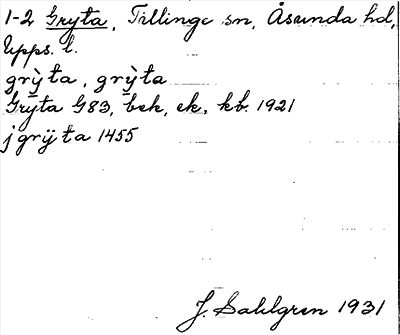 1-2 Gryta, Tillinge sn, Åsunda hd,
Upps. l.
grỳta, grỳta
Grȳta G83, bek, ek, kb. 1921
j grÿta 1455
J. Sahlgren 1931